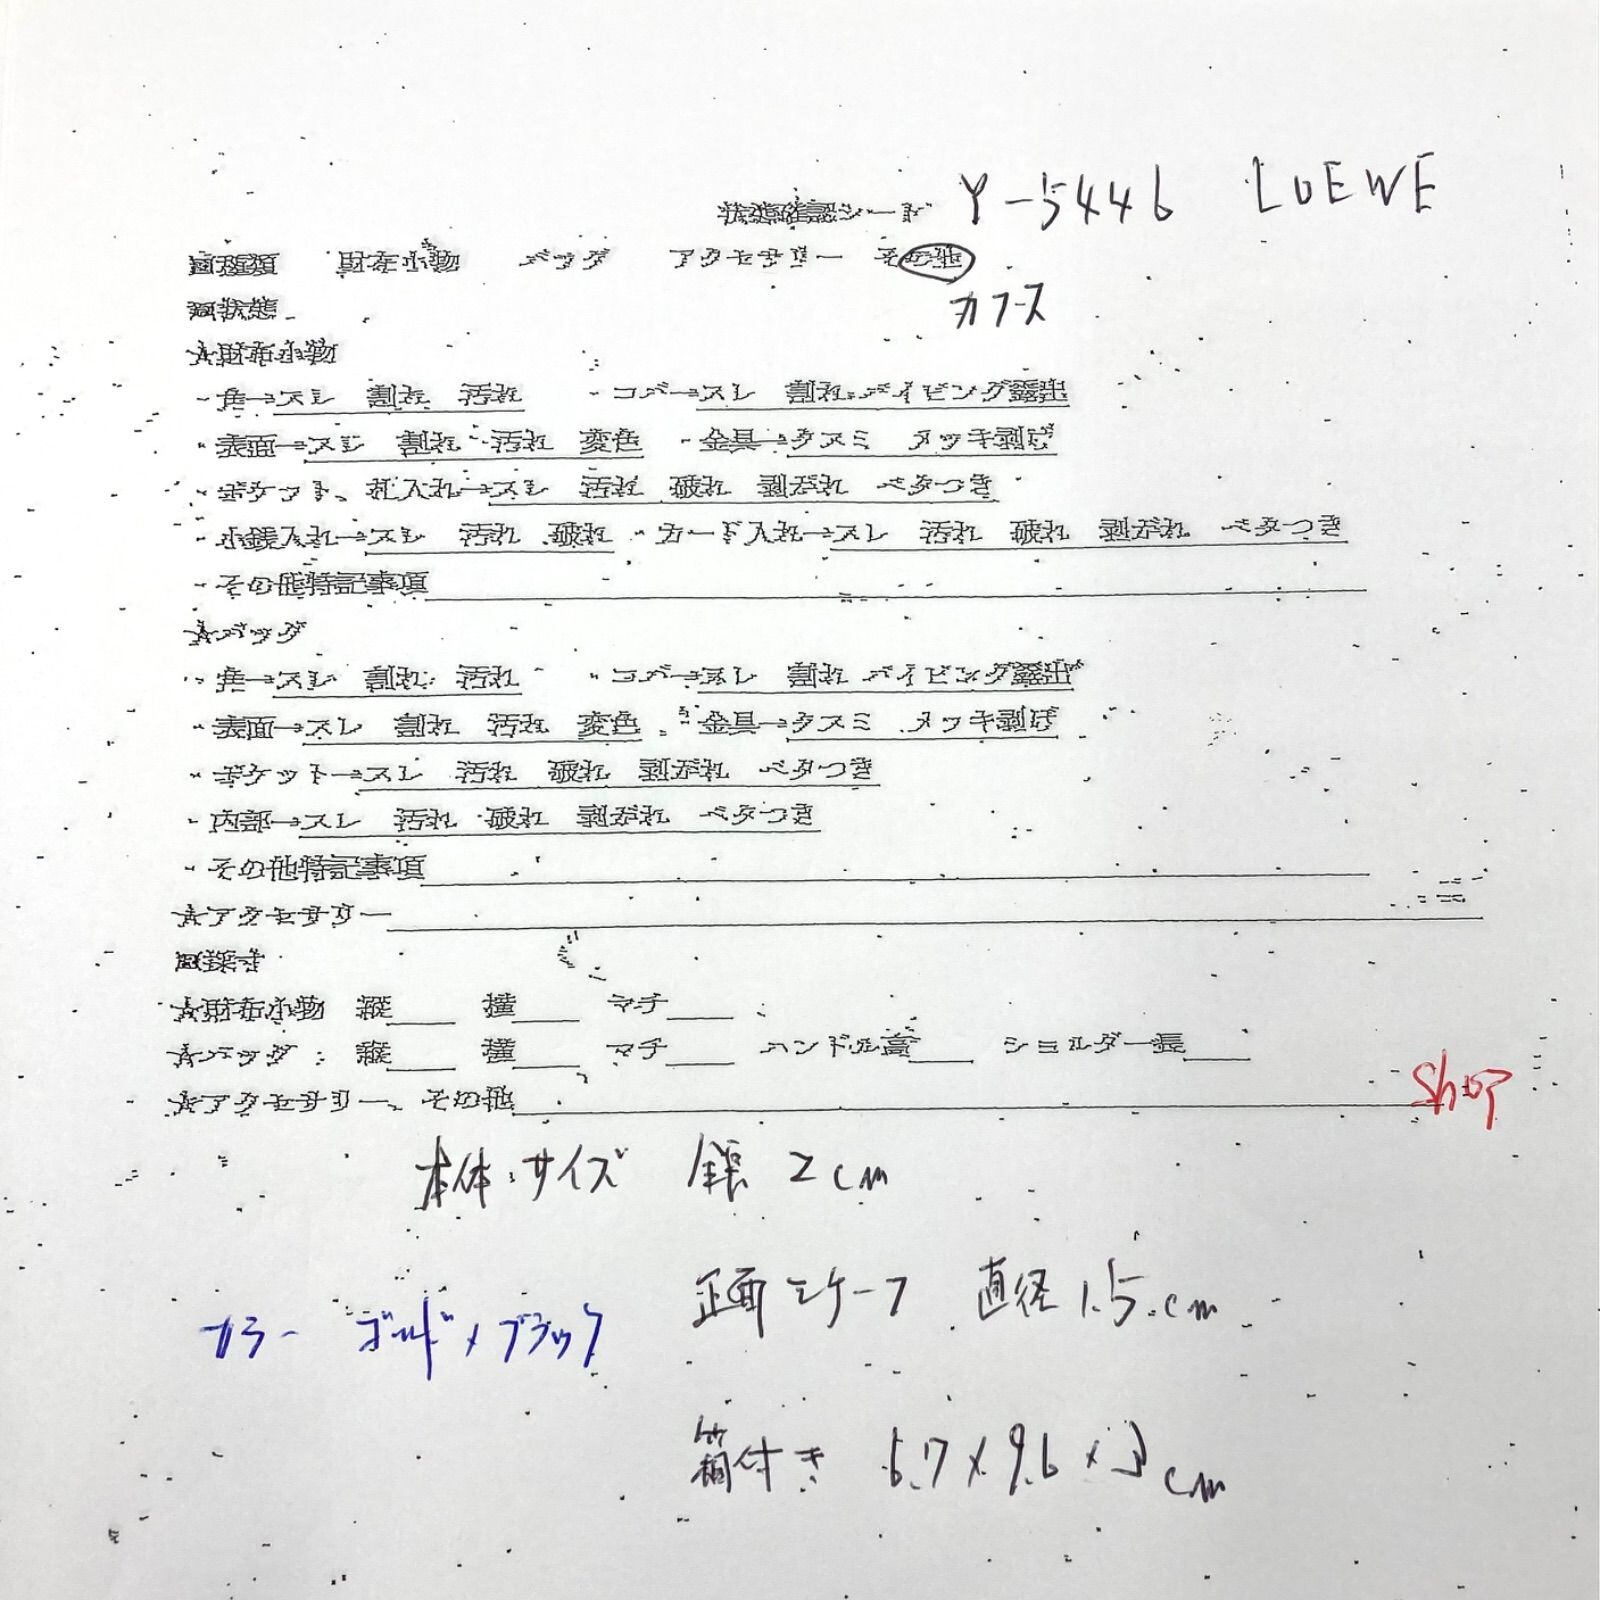 状態確認シート Y-5446 LOEWE
□種類 財布小物 バッグ アクセサリー その他
□状態 カフス
☆財布小物
・角→スレ 割れ 汚れ ・コバ→スレ 割れ パイピング露出
・表面→スレ 割れ 汚れ 変色 ・金具→クスミ メッキ剥げ
・ポケット、札入れ→スレ 汚れ 破れ 剥がれ ベタつき
・小銭入れ→スレ 汚れ 破れ ・カード入れ→スレ 汚れ 破れ 剥がれ ベタつき
・その他特記事項
☆バッグ
・角→スレ 割れ 汚れ ・コバ→スレ 割れ パイピング露出
・表面→スレ 割れ 汚れ 変色 ・金具→クスミ メッキ剥げ
・ポケット→スレ 汚れ 破れ 剥がれ ベタつき
・内部→スレ 汚れ 破れ 剥がれ ベタつき
・その他特記事項
☆アクセサリー
□採寸
☆財布小物 縦 横 マチ
☆バッグ 縦 横 マチ ハンドル高 ショルダー長
☆アクセサリー、その他 Shop
本体サイズ 2cm
直径1.5cm
カラー ゴールド×ブラック
箱付き 6.7×9.6×3cm